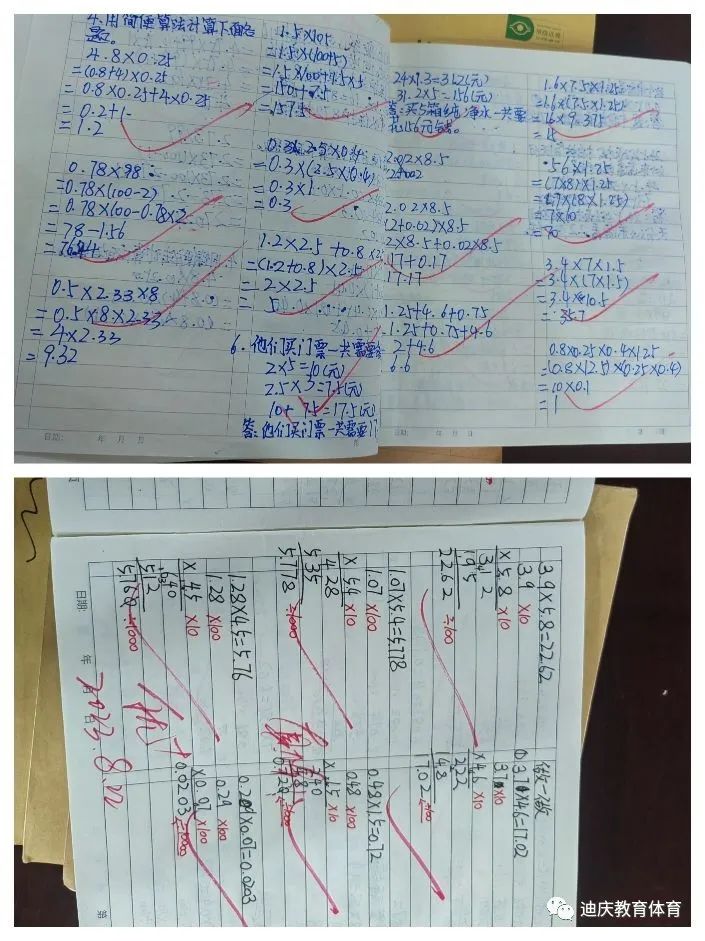 4.用简便算法计算下面各
题。
4.8×0.25
=(0.8+4)×0.25
=0.8×0.25+4×0.25
=0.2+1
=1.2
0.78×98
=0.78×(100-2)
=0.78×100-0.78×2
=78-1.56
=76.44
0.5×2.33×8
=0.5×8×2.33
=4×2.33
=9.32
1.5×105
=1.5×(100+5)
=1.5×100+1.5×5
=150+7.5
=157.5
=0.3×(2.5×0.4)
=0.3×1
=0.3
1.2×2.5+0.8×2.
=(1.2+0.8)×2.5
=2×2.5
5
6.他们买门票一共需要
2×5=10(元)
2.5×3=7.5(元)
10+7.5=17.5(元)
答:他们买门票一共需要17
日期: 年 月 日
24×1.3=31.2(元)
31.2×5=156(元)
答:买5箱纯净水一共要
花156元钱。
2.02×8.5
2.02×8.5
(2+0.02)×8.5
2×8.5+0.02×8.5
17+0.17
17.17
1.25+4.6+0.75
1.25+0.75+4.6
2+4.6
6.6
日期: 年 月 日
1.6×7.5×1.25
=1.6×(7.5×1.25)
=1.6×9.375
=15
56×1.25
=(7×8)×1.25
=7×(8×1.25)
=7×10
=70
3.4×7×1.5
=3.4×(7×1.5)
=3.4×10.5
=35.7
0.8×0.25×0.4×12.5
=(0.8×12.5)×(0.25×0.4)
=10×0.1
=1
3.9×5.8=22.62
3.9 ×10
×5.8 ×10
312
195
2262 ÷100
1.07×5.4=5.778
1.07 ×100
×5.4 ×10
428
535
5.778 ÷1000
1.28×4.5=5.76
1.28 ×100
×4.5 ×10
640
512
5.760 ÷1000
日期: 年 月 日
2023.8.22
做一做
0.37×4.6=17.02
37 ×10
×4.6 ×10
222
148
17.02 ÷100
0.48×1.5=0.72
0.48 ×100
×1.5 ×10
240
48
0.720 ÷1000
0.29×0.07=0.0203
0.29 ×100
×0.07 ×100
0.0203 ÷10000
第
迪庆教育体育